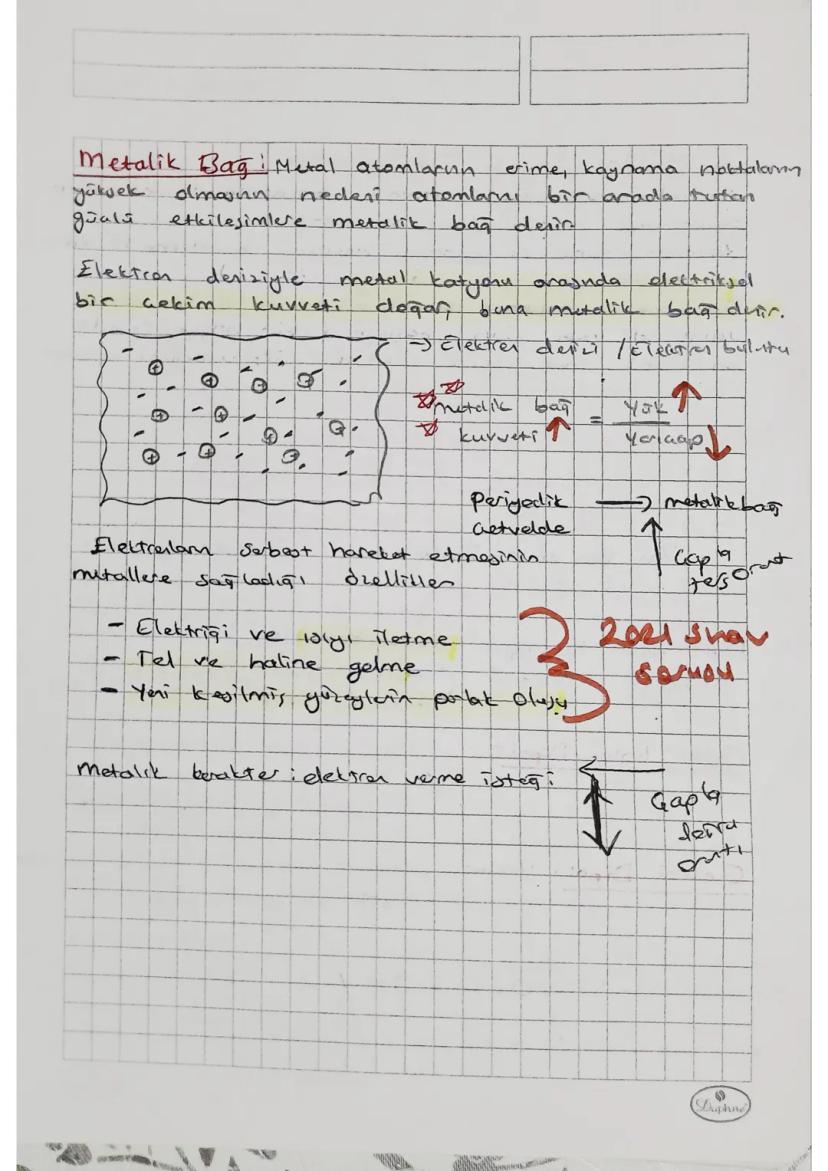 Metalik Bağ: Metal atomlarının erime, kaynama noktalarının
yüksek olmasının nedeni atomlarını bir arada tutan
güçlü etkileşimlere metalik bağ denir
Elektron deniziyle metal katyonu arasında elektriksel
bir çekim kuvveti doğar, buna metalik bağ denir.
→ Elektron denizi / Elektron bulutu
metalik bağ kuvveti ↑ = Yük ↑ / Yarıçap ↓
Periyodik cetvelde → metalik bağ
↑ Çap'la ters orantı
Elektronların serbest hareket etmesinin
metallere sağladığı özellikler
- Elektriği ve ısıyı iletme
- Tel ve haline gelme
- Yeni kesilmiş yüzeylerin parlak oluşu
2021 sınav
sorusu
Metalik karakter: elektron verme isteği
Çap'la
doğru
orantı
Daphne